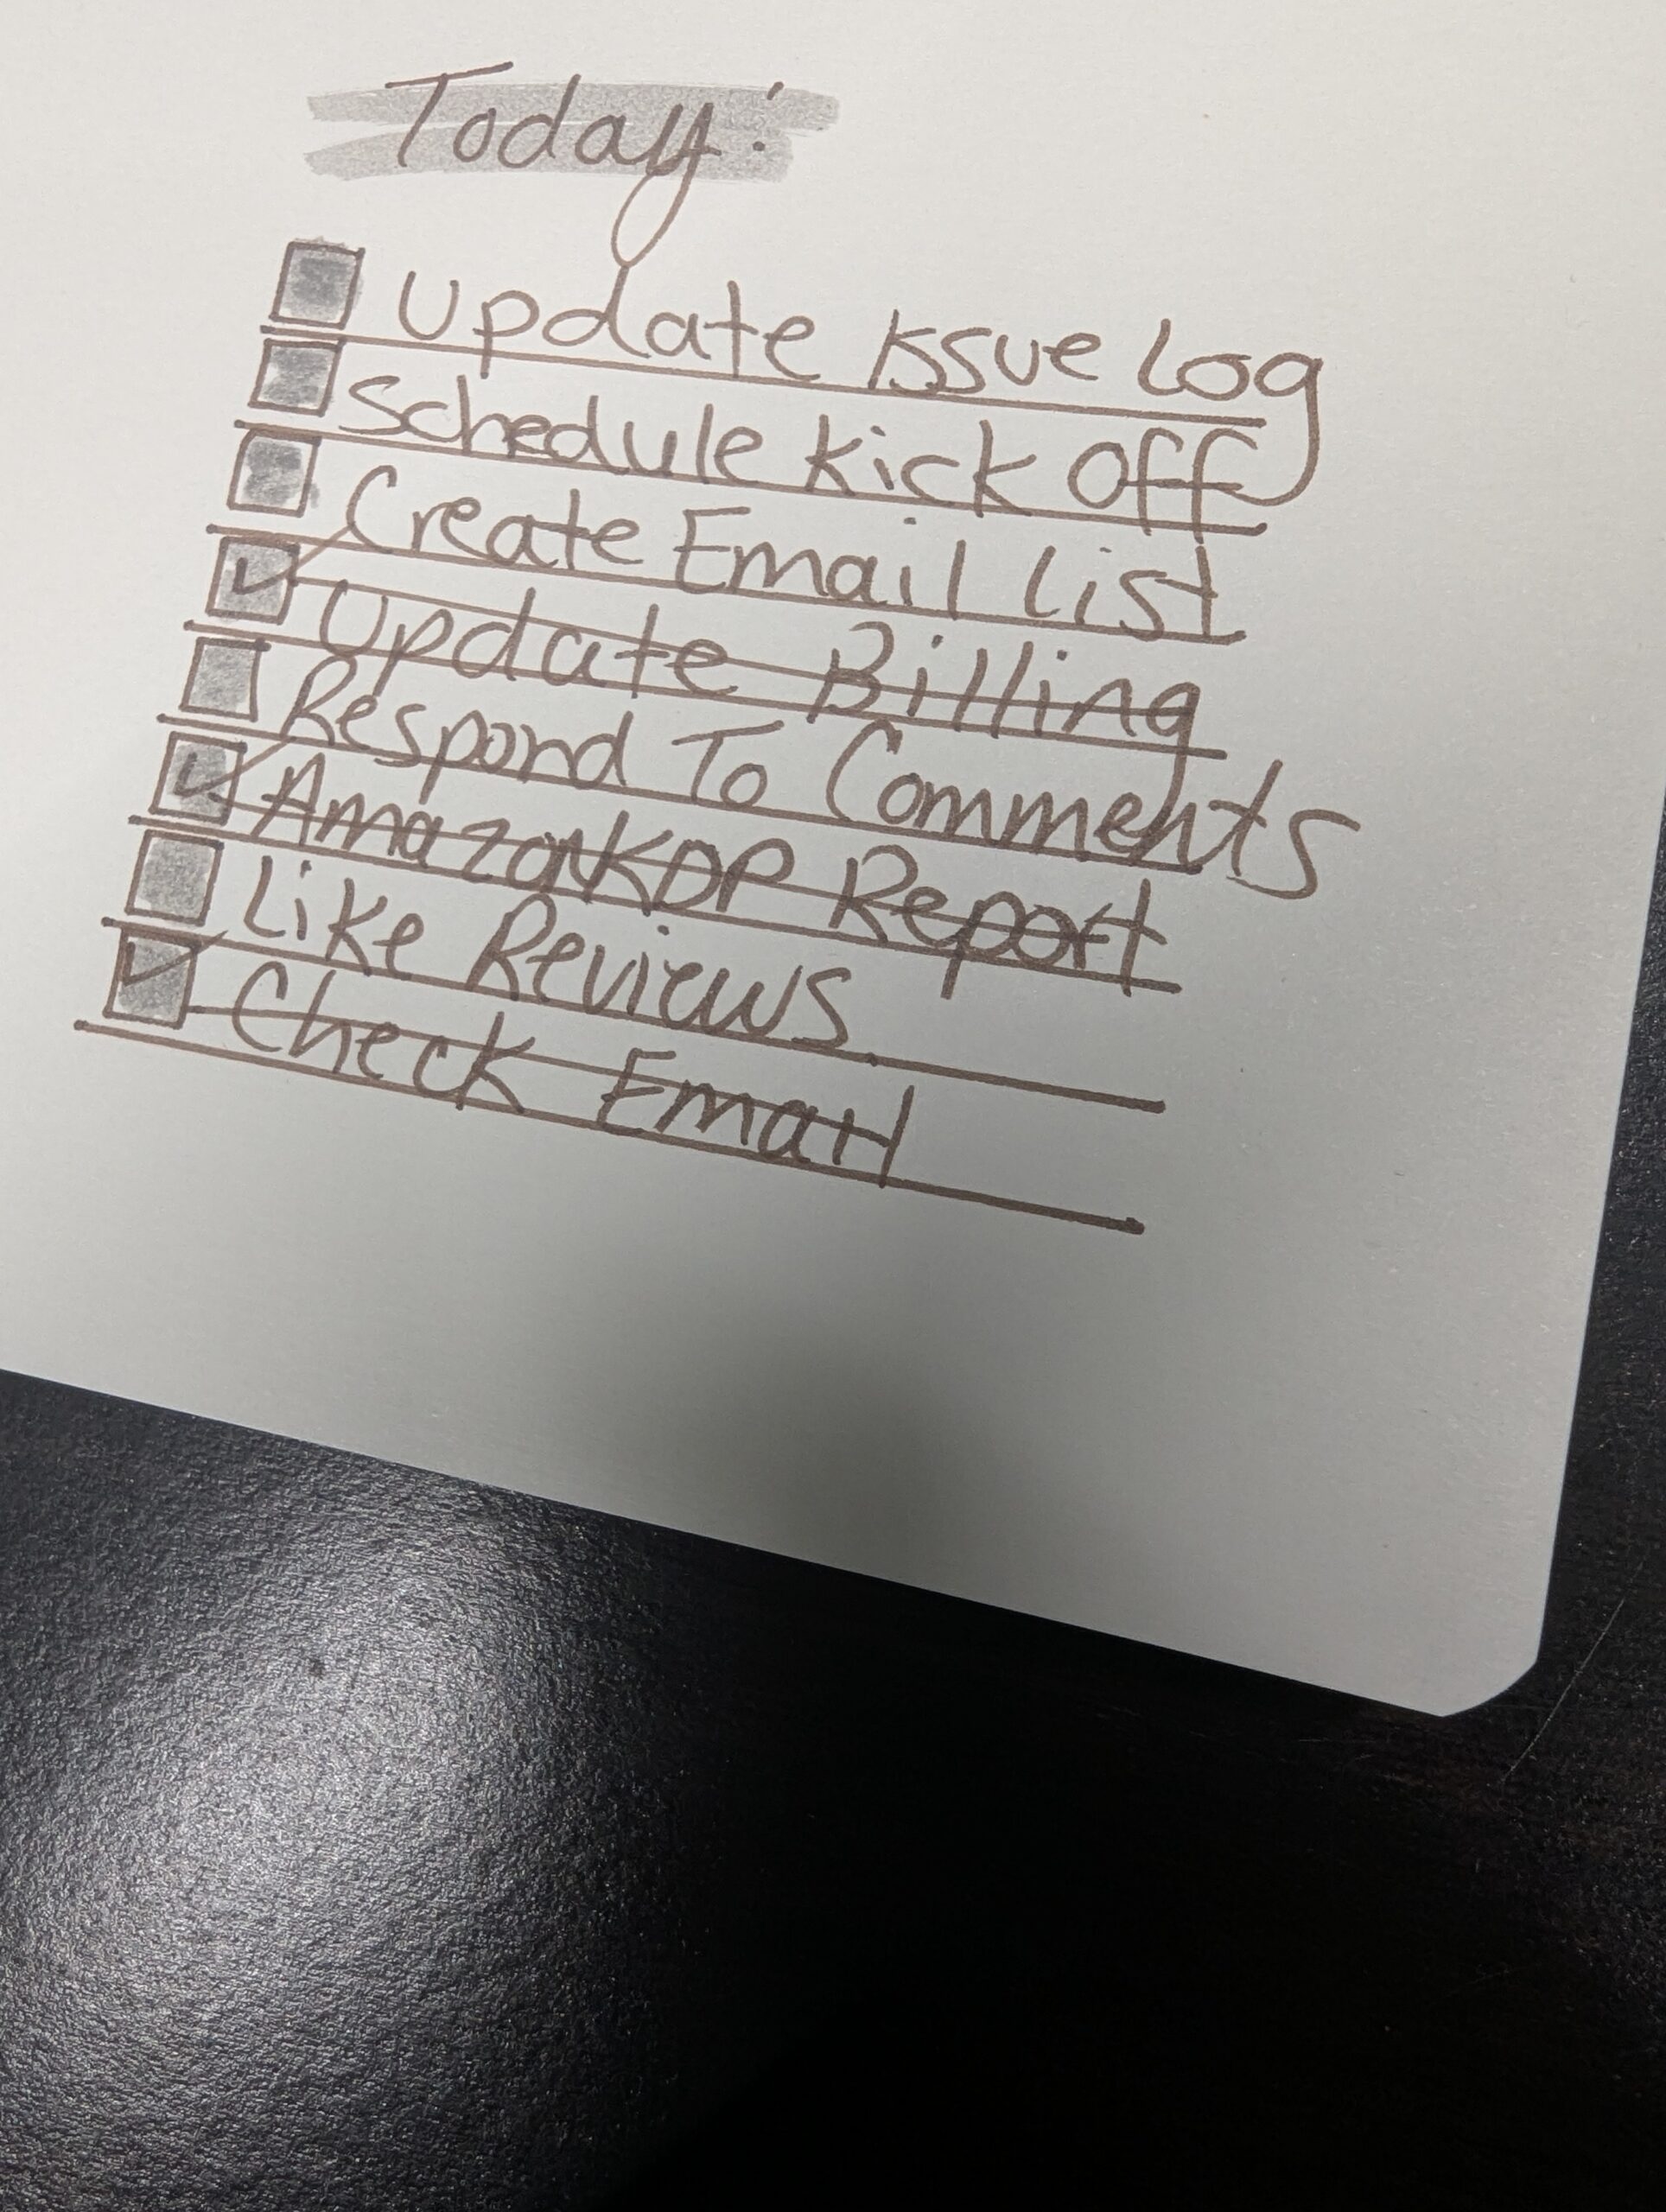 Today:
Update Issue Log
Schedule Kick Off
Create Email List
Update Billing
Respond To Comments
Amazon KDP Report
Like Reviews
Check Email